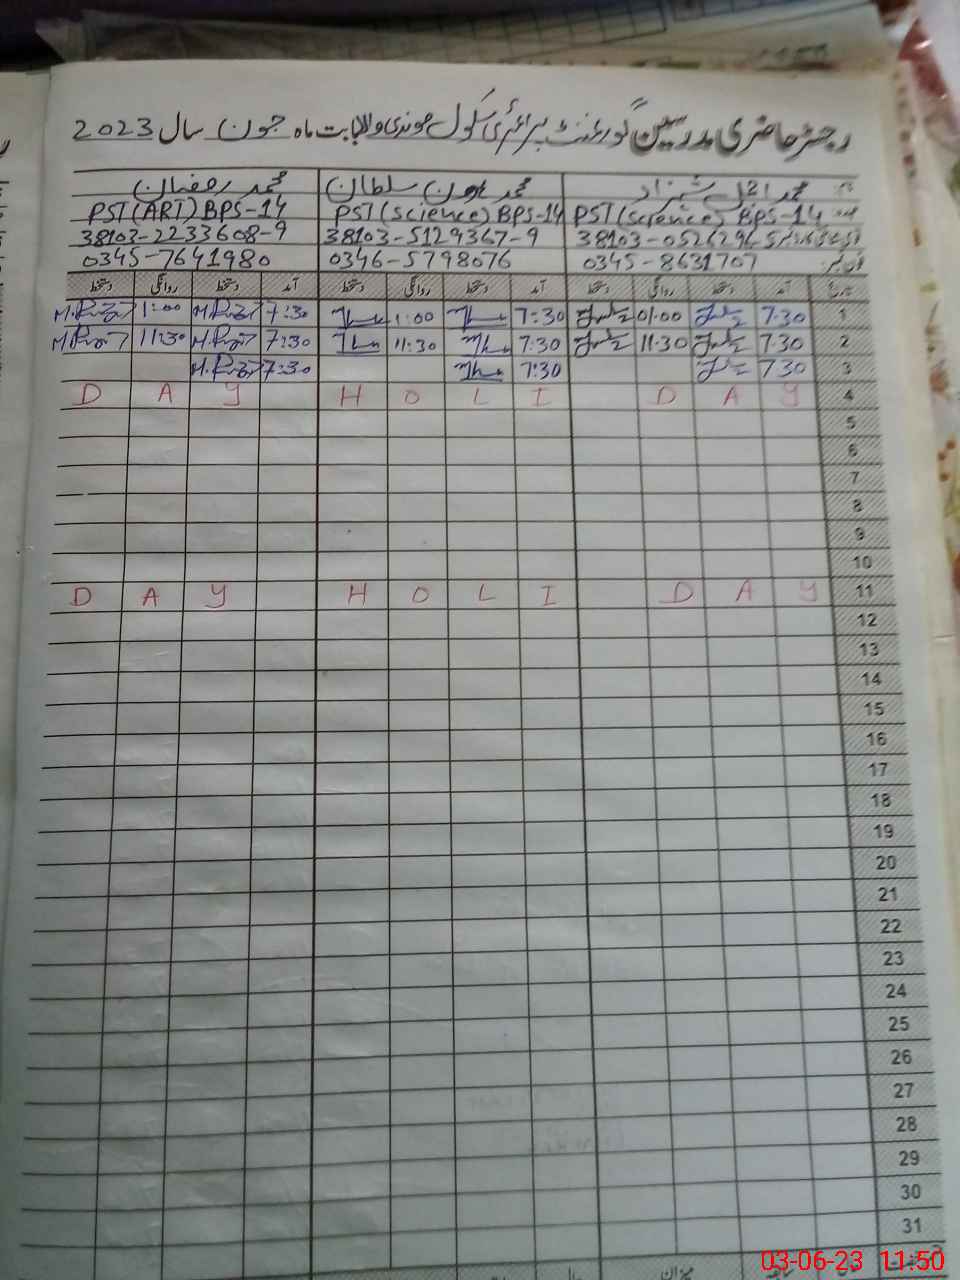 رجسٹر حاضری مدرسین گورنمنٹ پرائمری سکول جوندی والا بابت ماہ جون سال 2023
نام محمد اجمل شہزاد محمد ہارون سلطان محمد رمضان
PST (Science) BPS-14 PST (Science) BPS-14 PST (ART) BPS-14
38103-0526296-5 38103-5129367-9 38103-2233608-9
فون نمبر 0345-8631707 0346-5798076 0345-7641980
تاریخ آمد دستخط روانگی دستخط آمد دستخط روانگی دستخط آمد دستخط روانگی دستخط
1 7.30 01.00 7:30 1:00 7:30 M. 1:00 M.
2 7.30 11.30 7:30 11:30 7:30 M. 11:30 M.
3 7.30 7:30 7:30 M.
D A Y H O L I D A Y 4
5
6
7
8
9
10
D A Y H O L I D A Y 11
12
13
14
15
16
17
18
19
20
21
22
23
24
25
26
27
28
29
30
31
میزان سابقہ
03-06-23 11:50